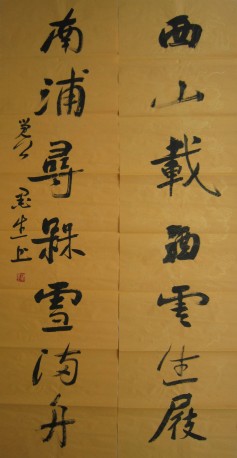 西山載酒雲生屐
南浦尋梅雪滿舟